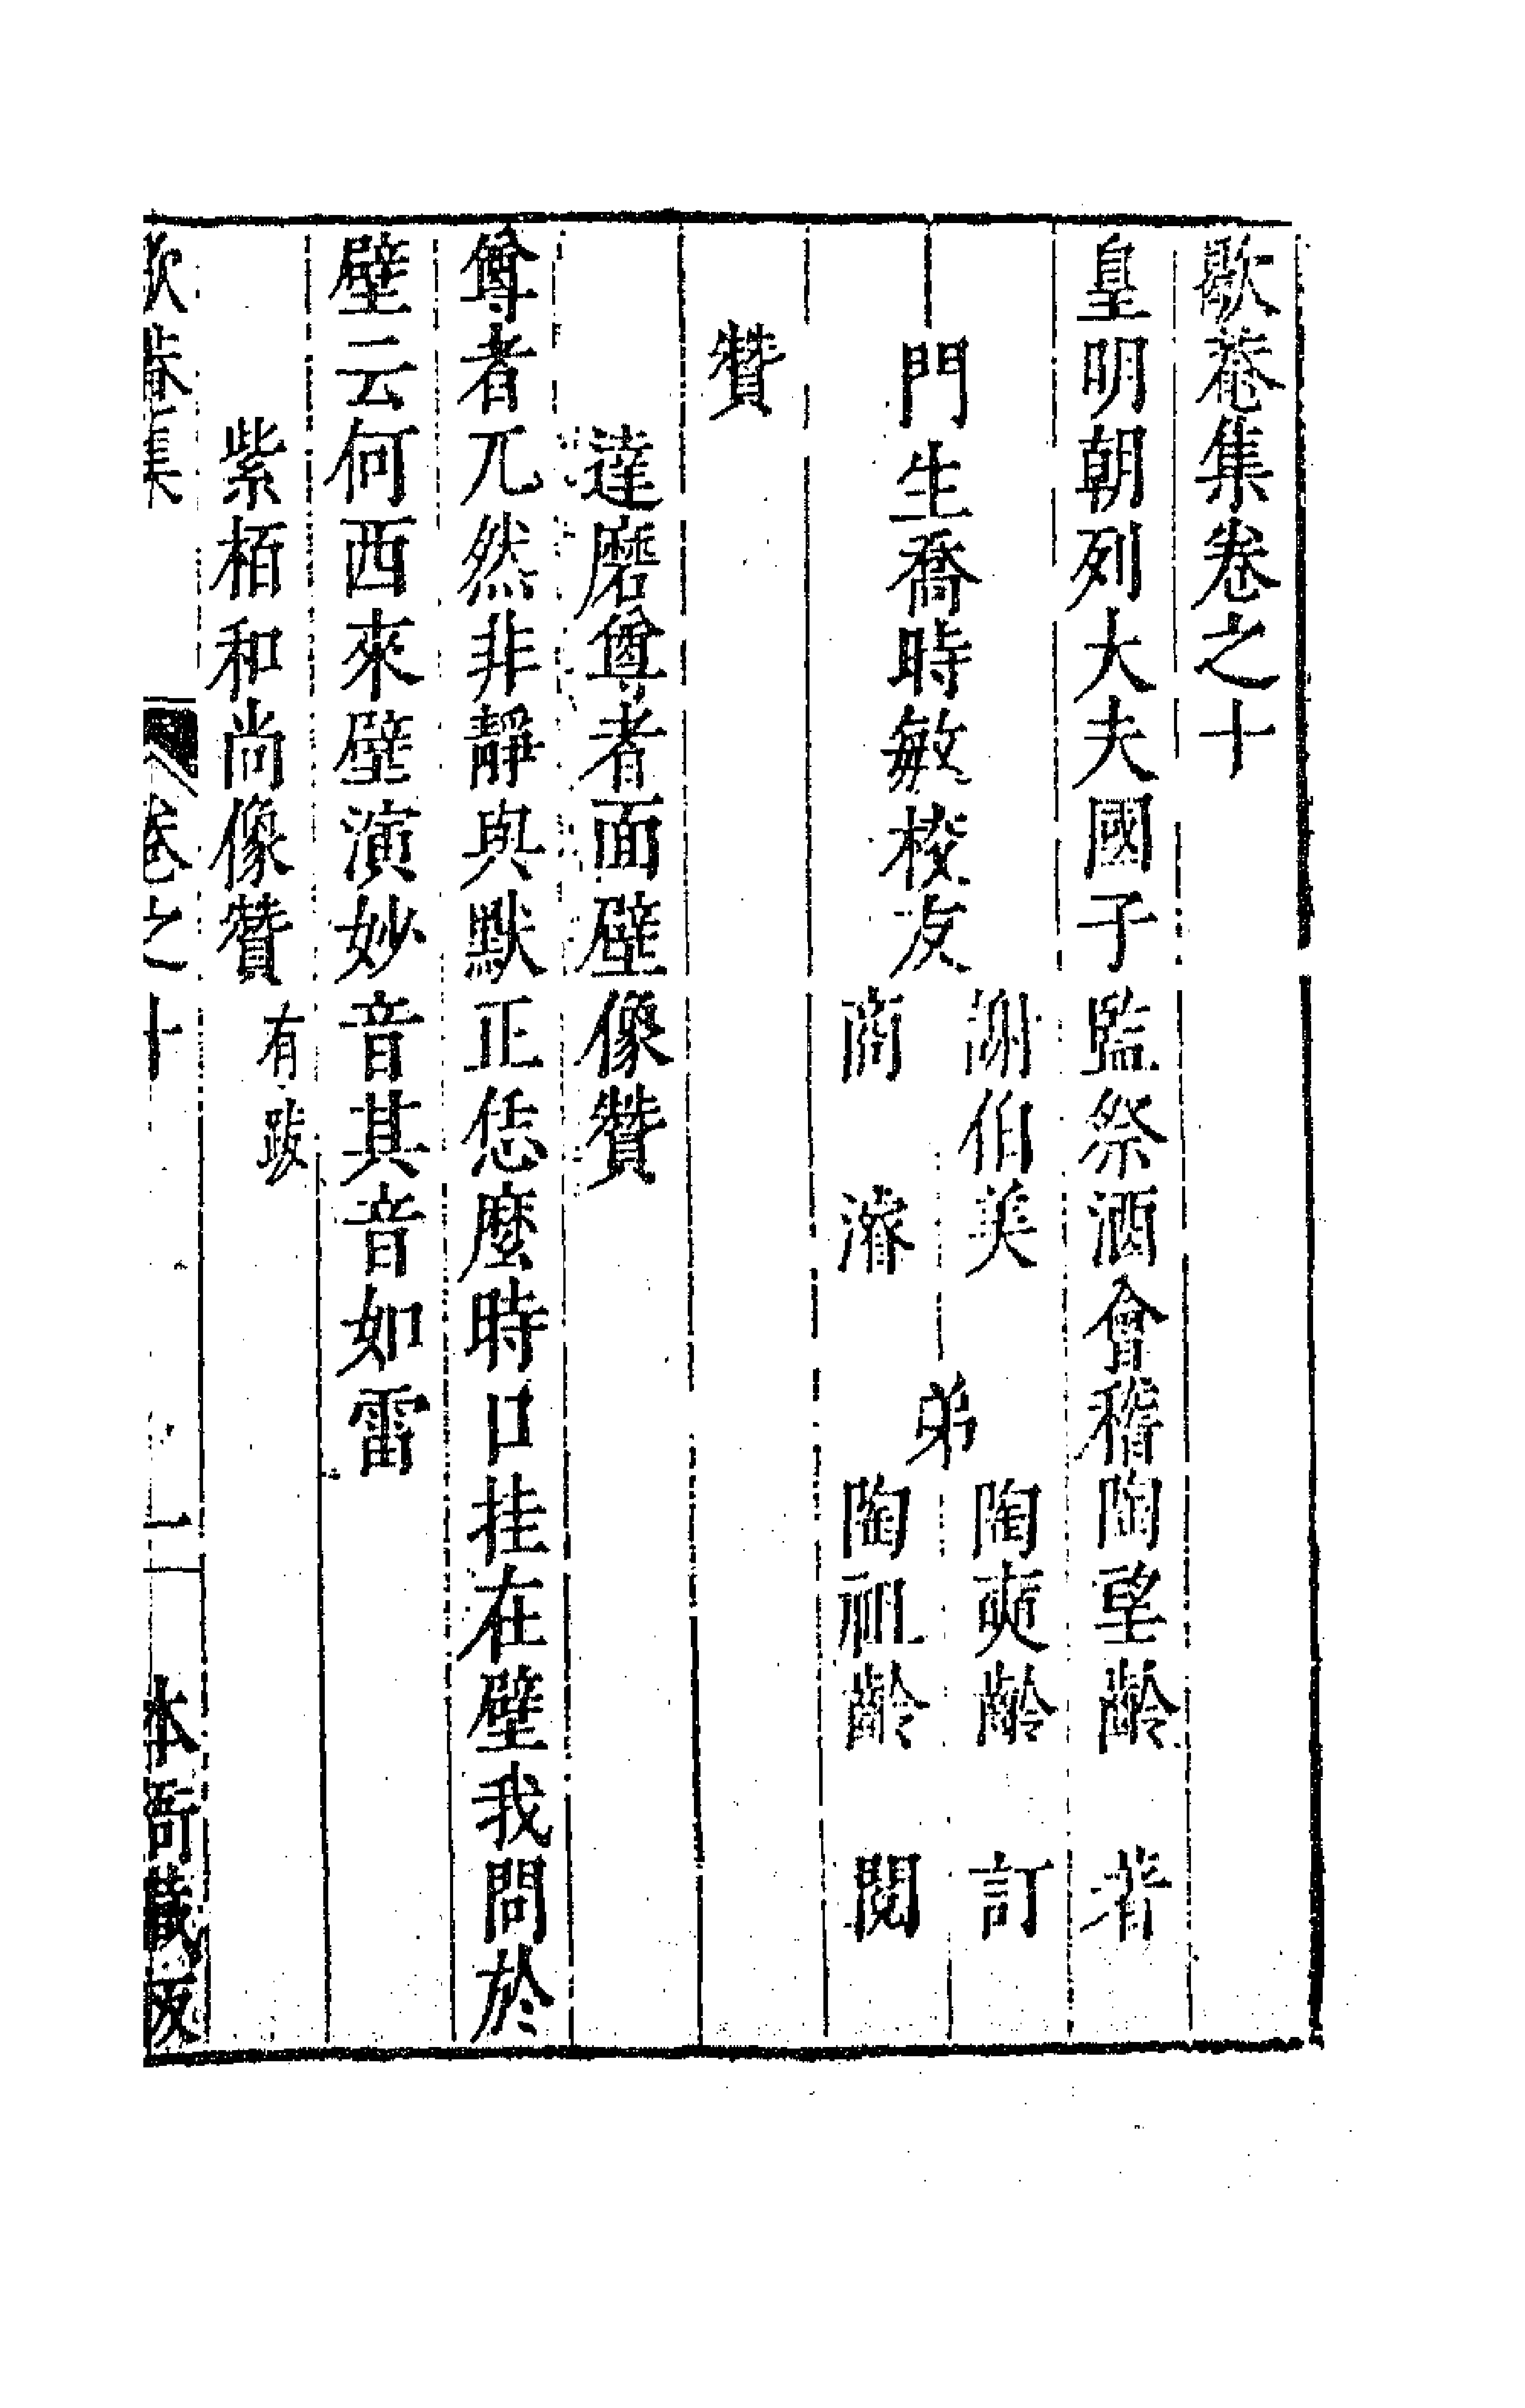 歇菴集卷之十
皇明朝列大夫國子監祭酒會稽陶望齡　著
門生喬時敏校友　謝伯美　弟　陶奭齡　訂
商　濬　陶祖齡　閱
贊
達磨尊者面壁像贊
尊者兀然非靜與默正恁麼時口挂在壁我問於
壁云何西來壁演妙音其音如雷
紫栢和尚像贊　有跋
歇菴集　卷之十　一　本衙藏板